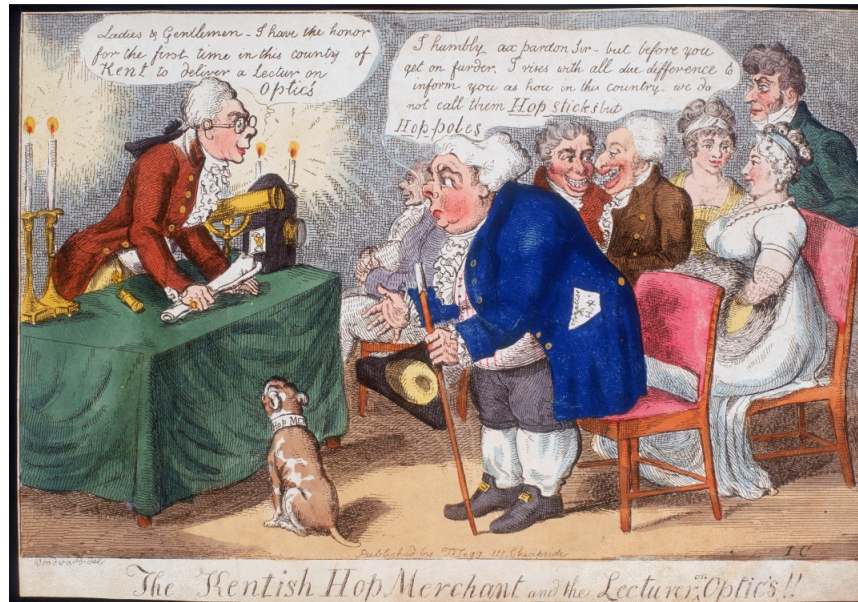 Ladies & Gentlemen - I have the honor
for the first time in this country of
Kent to deliver a Lectur on
Optics
I humbly ax pardon Sir - but before you
get on furder. I rises with all due difference to
inform you as how in this country we do
not call them Hop sticks but
Hop poles
Hop Mer
Woodward del
Published by T Tegg 111 Cheapside
I C
The Kentish Hop Merchant and the Lecturer on Optic's!!